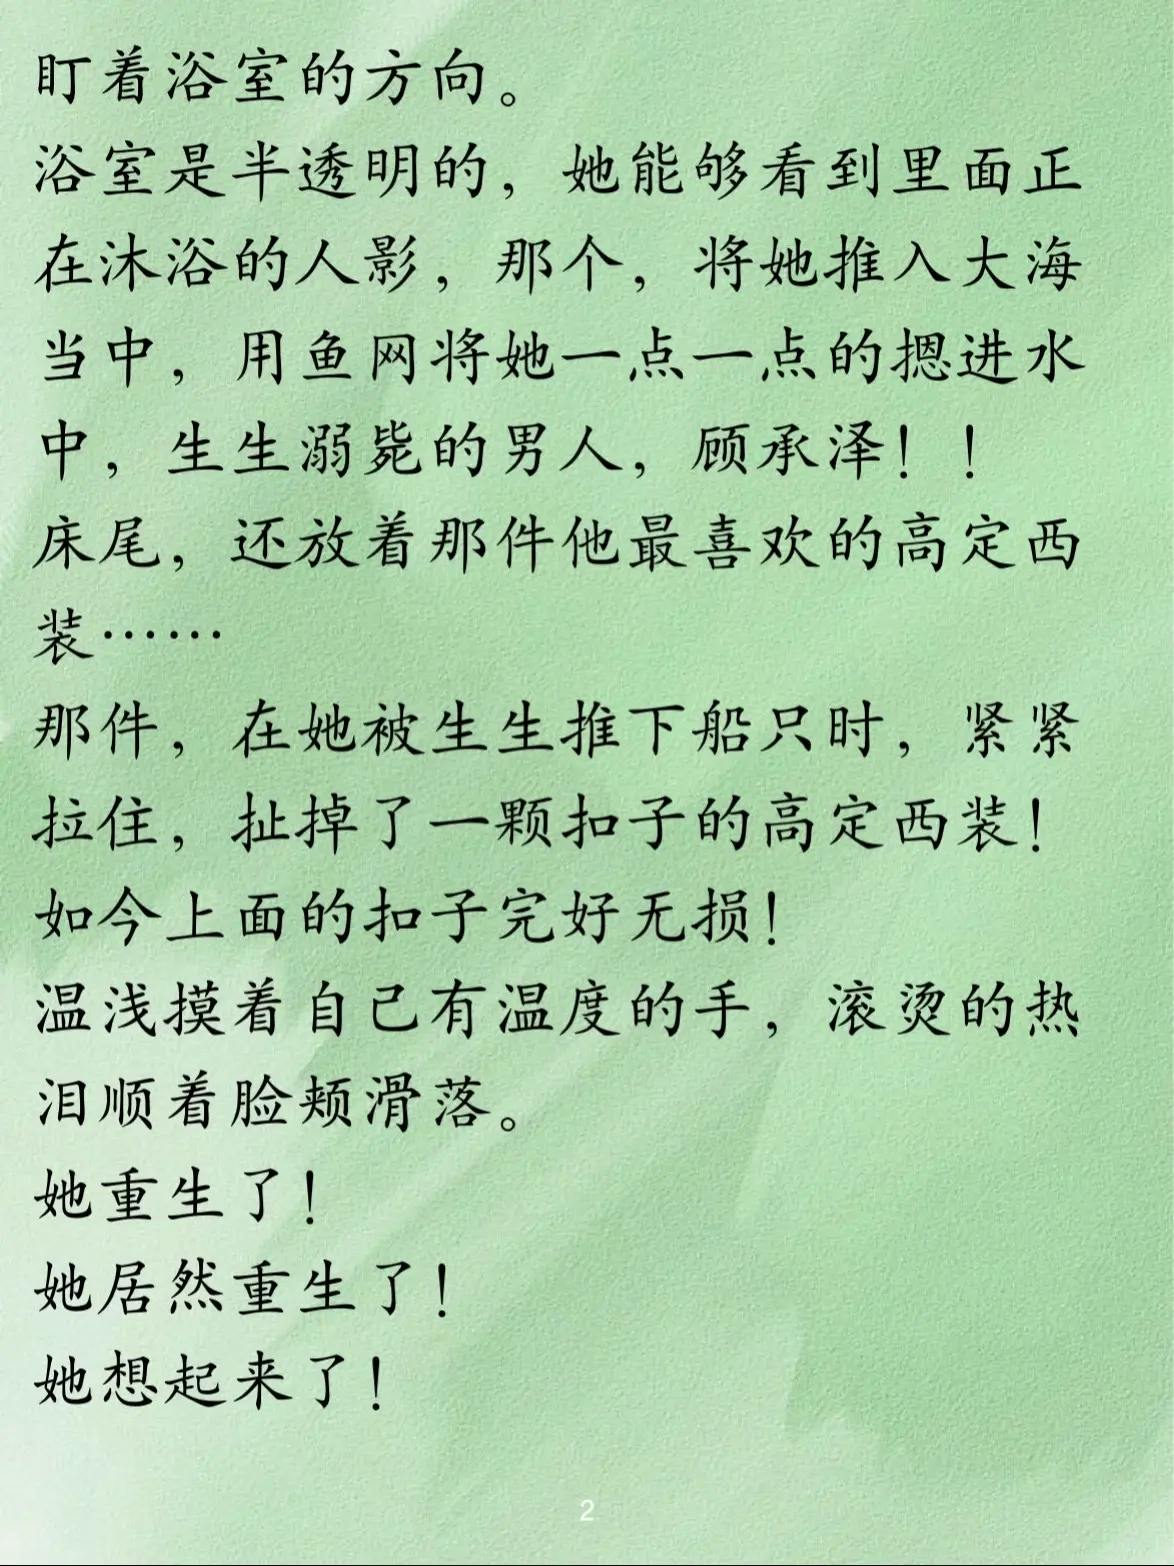 盯着浴室的方向。
浴室是半透明的，她能够看到里面正
在沐浴的人影，那个，将她推入大海
当中，用鱼网将她一点一点的摁进水
中，生生溺毙的男人，顾承泽！！
床尾，还放着那件他最喜欢的高定西
装……
那件，在她被生生推下船只时，紧紧
拉住，扯掉了一颗扣子的高定西装！
如今上面的扣子完好无损！
温浅摸着自己有温度的手，滚烫的热
泪顺着脸颊滑落。
她重生了！
她居然重生了！
她想起来了！
2